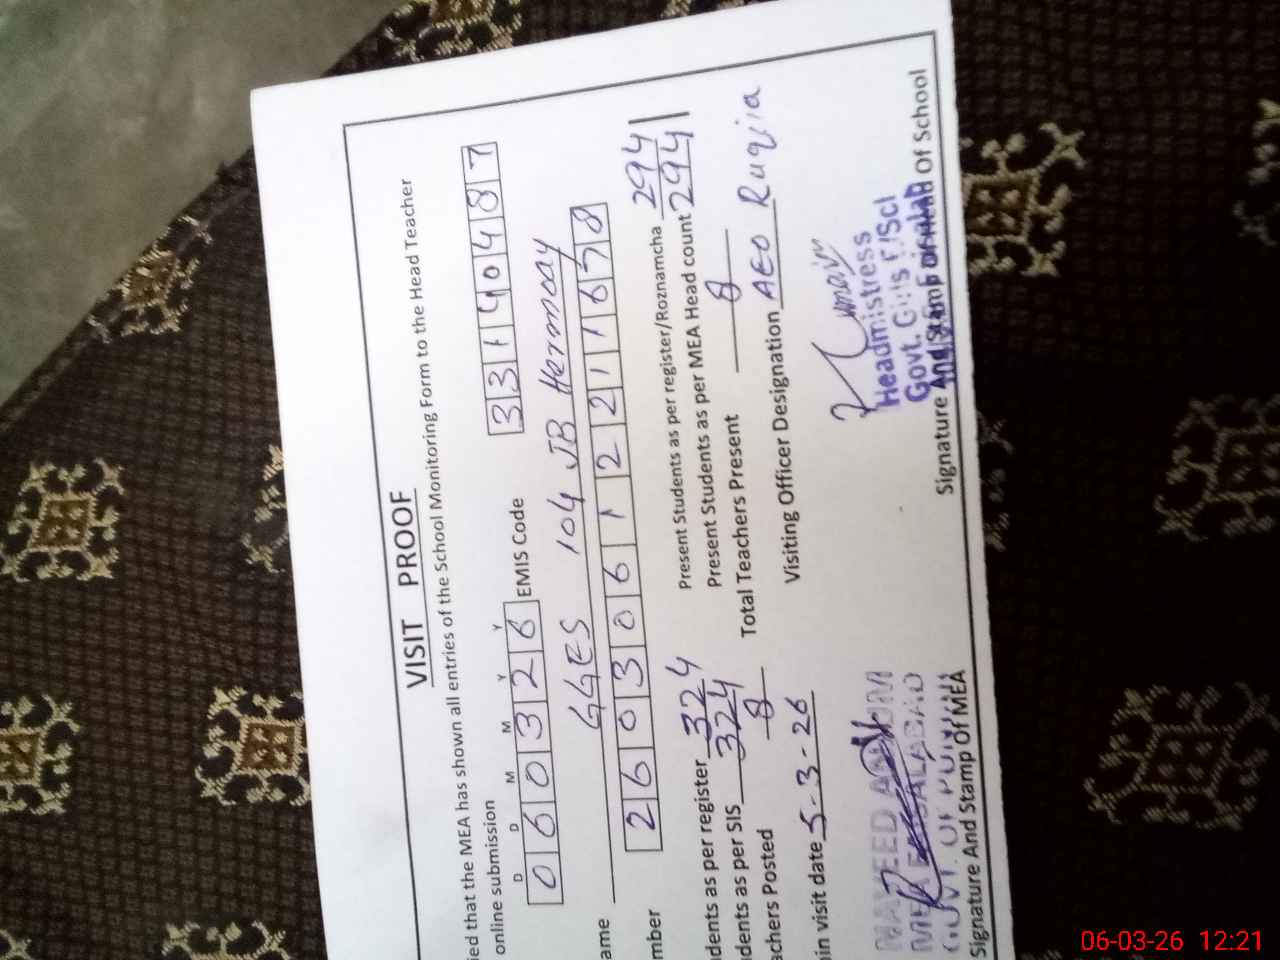 VISIT PROOF
ied that the MEA has shown all entries of the School Monitoring Form to the Head Teacher
online submission
D D M M Y Y
060326 EMIS Code 33140487
ame GGES 104 JB Hermoay
mber 260306112211678
dents as per register 324 Present Students as per register/Roznamcha 294
dents as per SIS 324 Present Students as per MEA Head count 294
achers Posted 8 Total Teachers Present 8
in visit date 5-3-26 Visiting Officer Designation AEO Ruqia
Headmistress
Govt. Girls E/Scl
MEA FAISALABAD
GOVT. OF PUNJAB
Signature And Stamp Of MEA Signature And Stamp Of Head Of School
06-03-26 12:21